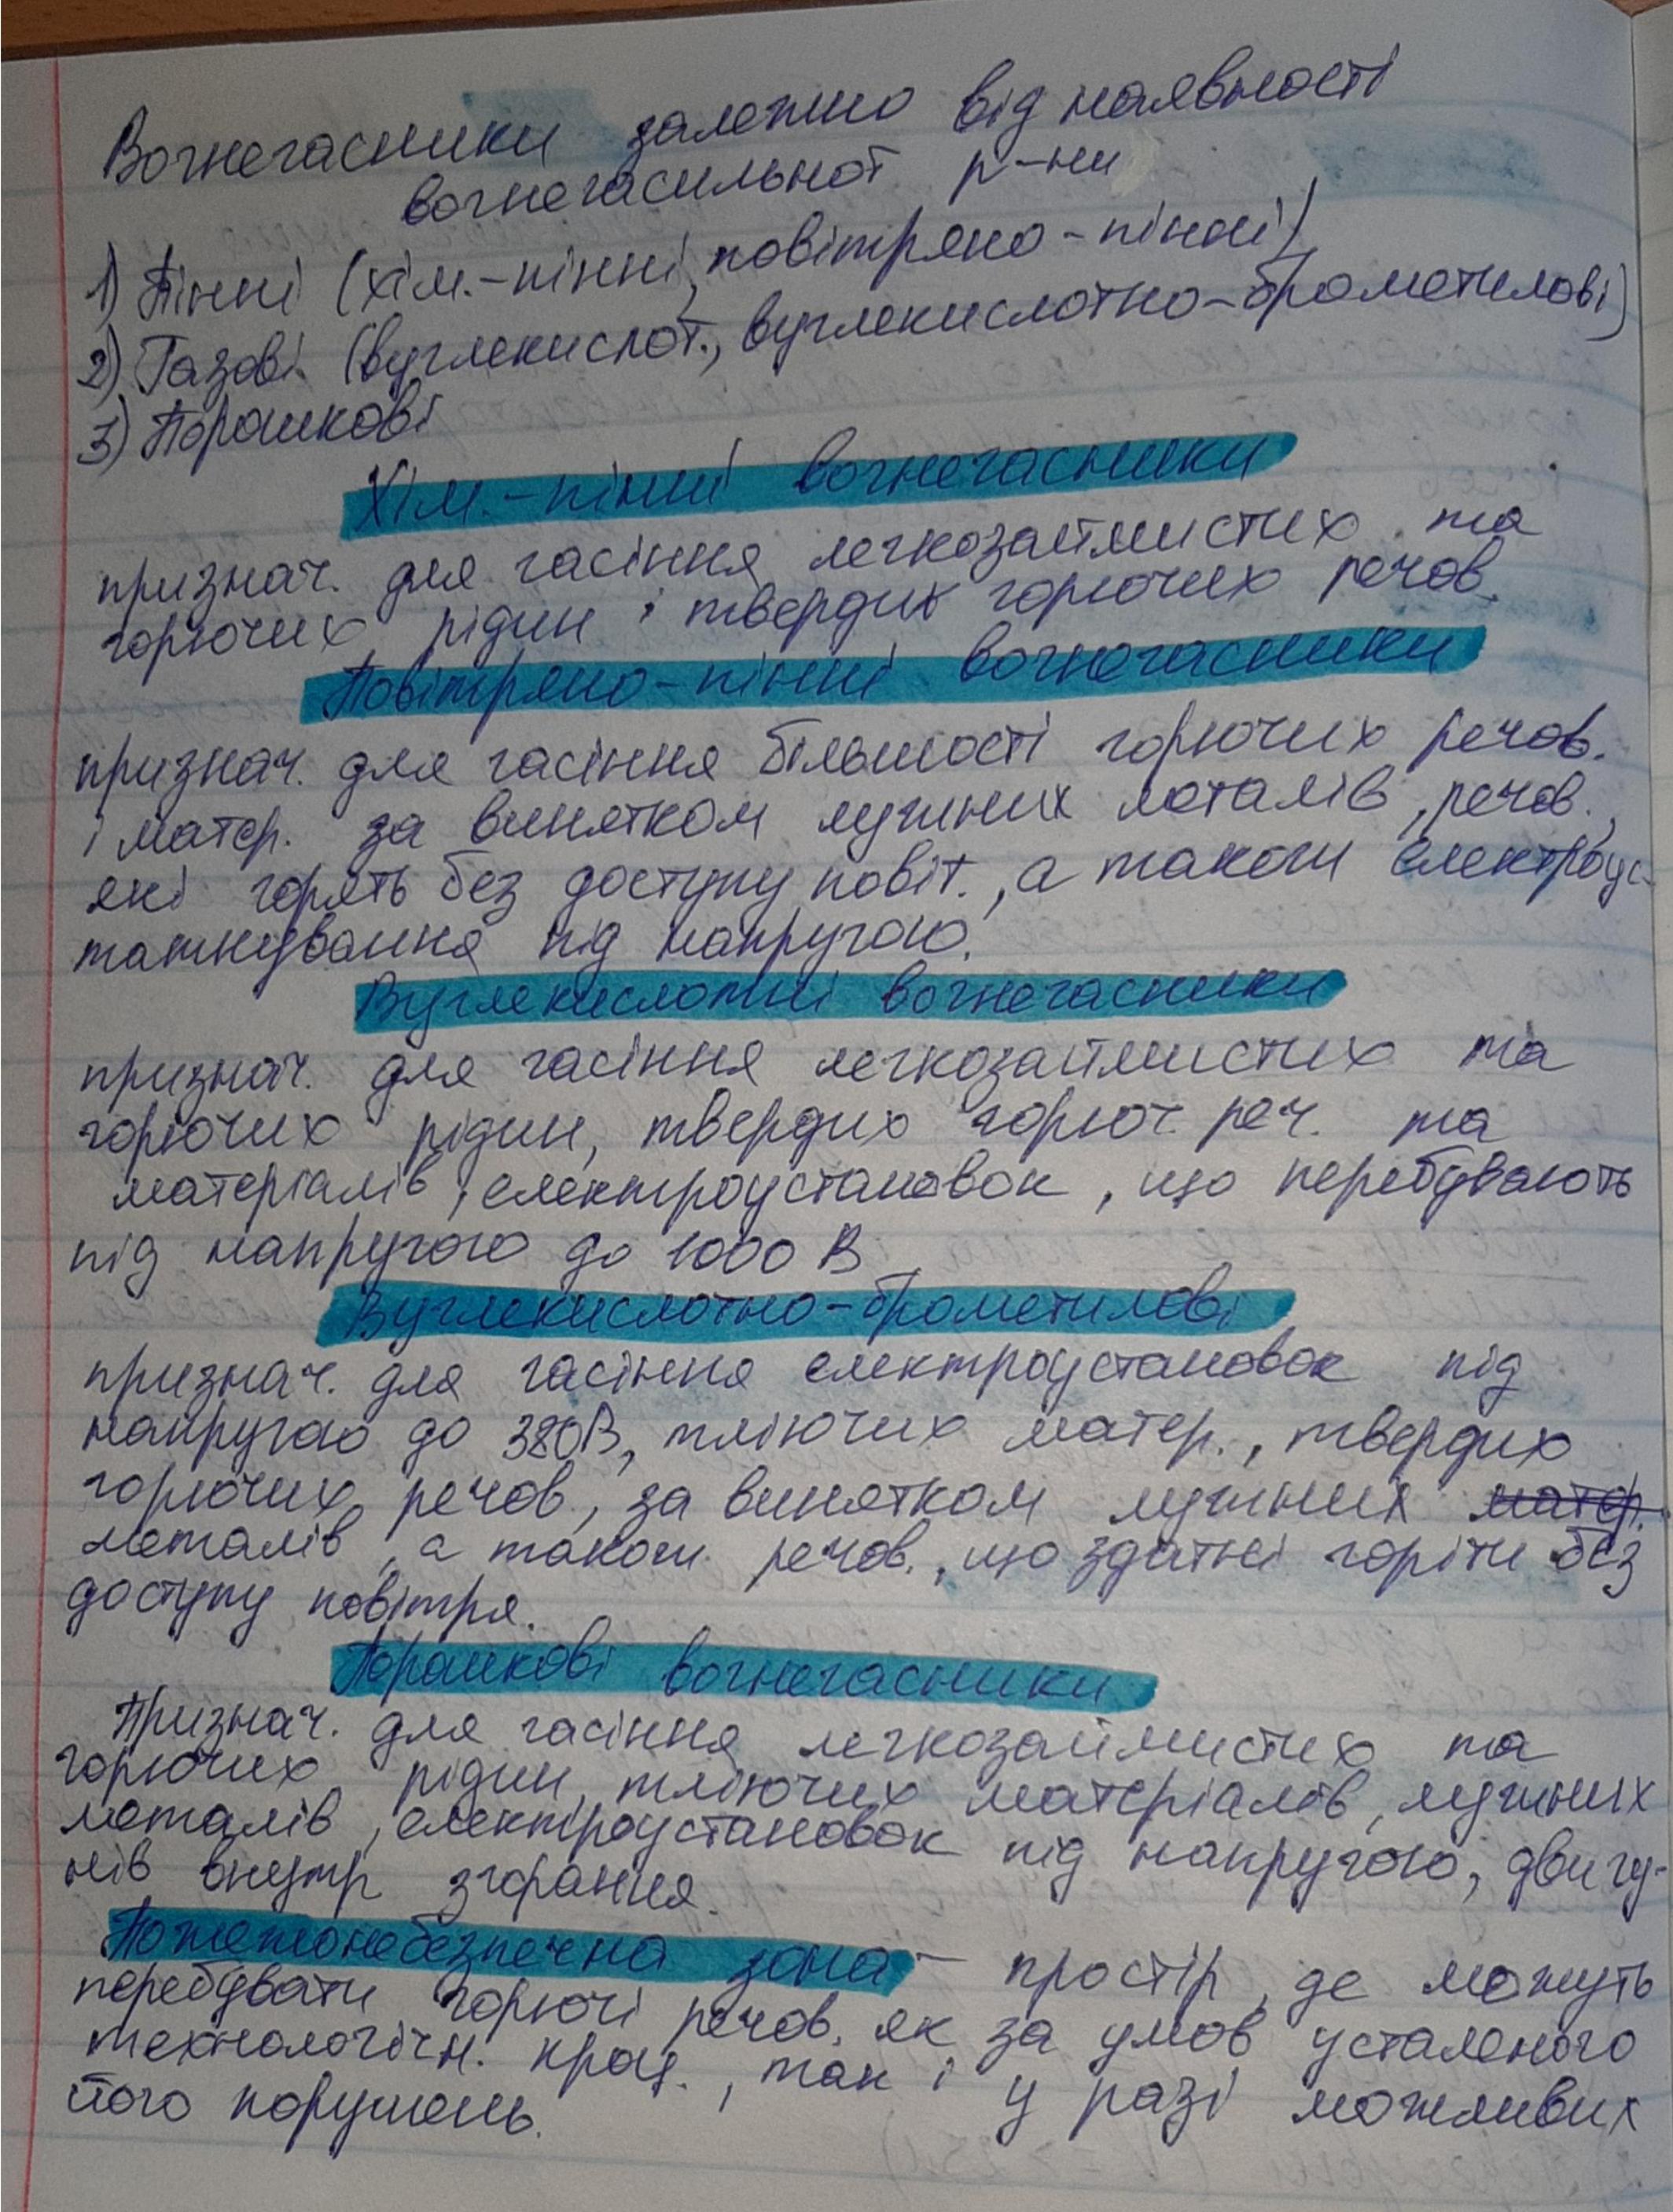 Вогнегасники залежно від наявності
вогнегасильної р-ни
1) Пінні (хім.-пінні, повітряно-пінні)
2) Газові (вуглекислот., вуглекислотно-брометилові)
3) Порошкові
Хім.-пінні вогнегасники
признач. для гасіння легкозаймистих та
горючих рідин і твердих горючих речов.
Повітряно-пінні вогнегасники
признач. для гасіння більшості горючих речов.
і матер. за винятком лужних металів, речов.,
які горять без доступу повіт., а також електроус-
таткування під напругою.
Вуглекислотні вогнегасники
признач. для гасіння легкозаймистих та
горючих рідин, твердих горюч. реч. та
матеріалів, електроустановок, що перебувають
під напругою до 1000 В
Вуглекислотно-брометилові
признач. для гасіння електроустановок під
напругою до 380В, тліючих матер., твердих
горючих речов., за винятком лужних матер.
металів, а також речов., що здатні горіти без
доступу повітря.
Порошкові вогнегасники
Признач. для гасіння легкозаймистих та
горючих рідин, тліючих матеріалів, лужних
металів, електроустановок під напругою, двигу-
нів внутр згорання.
Пожежонебезпечна зона - простір, де можуть
перебувати горючі речов. як за умов усталеного
технологічн. проц., так і у разі можливих
його порушень.